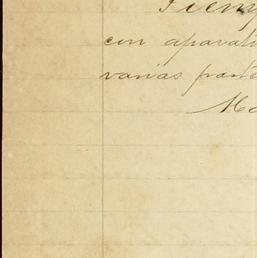 Tiemp
con aparati
varias parte
Ma